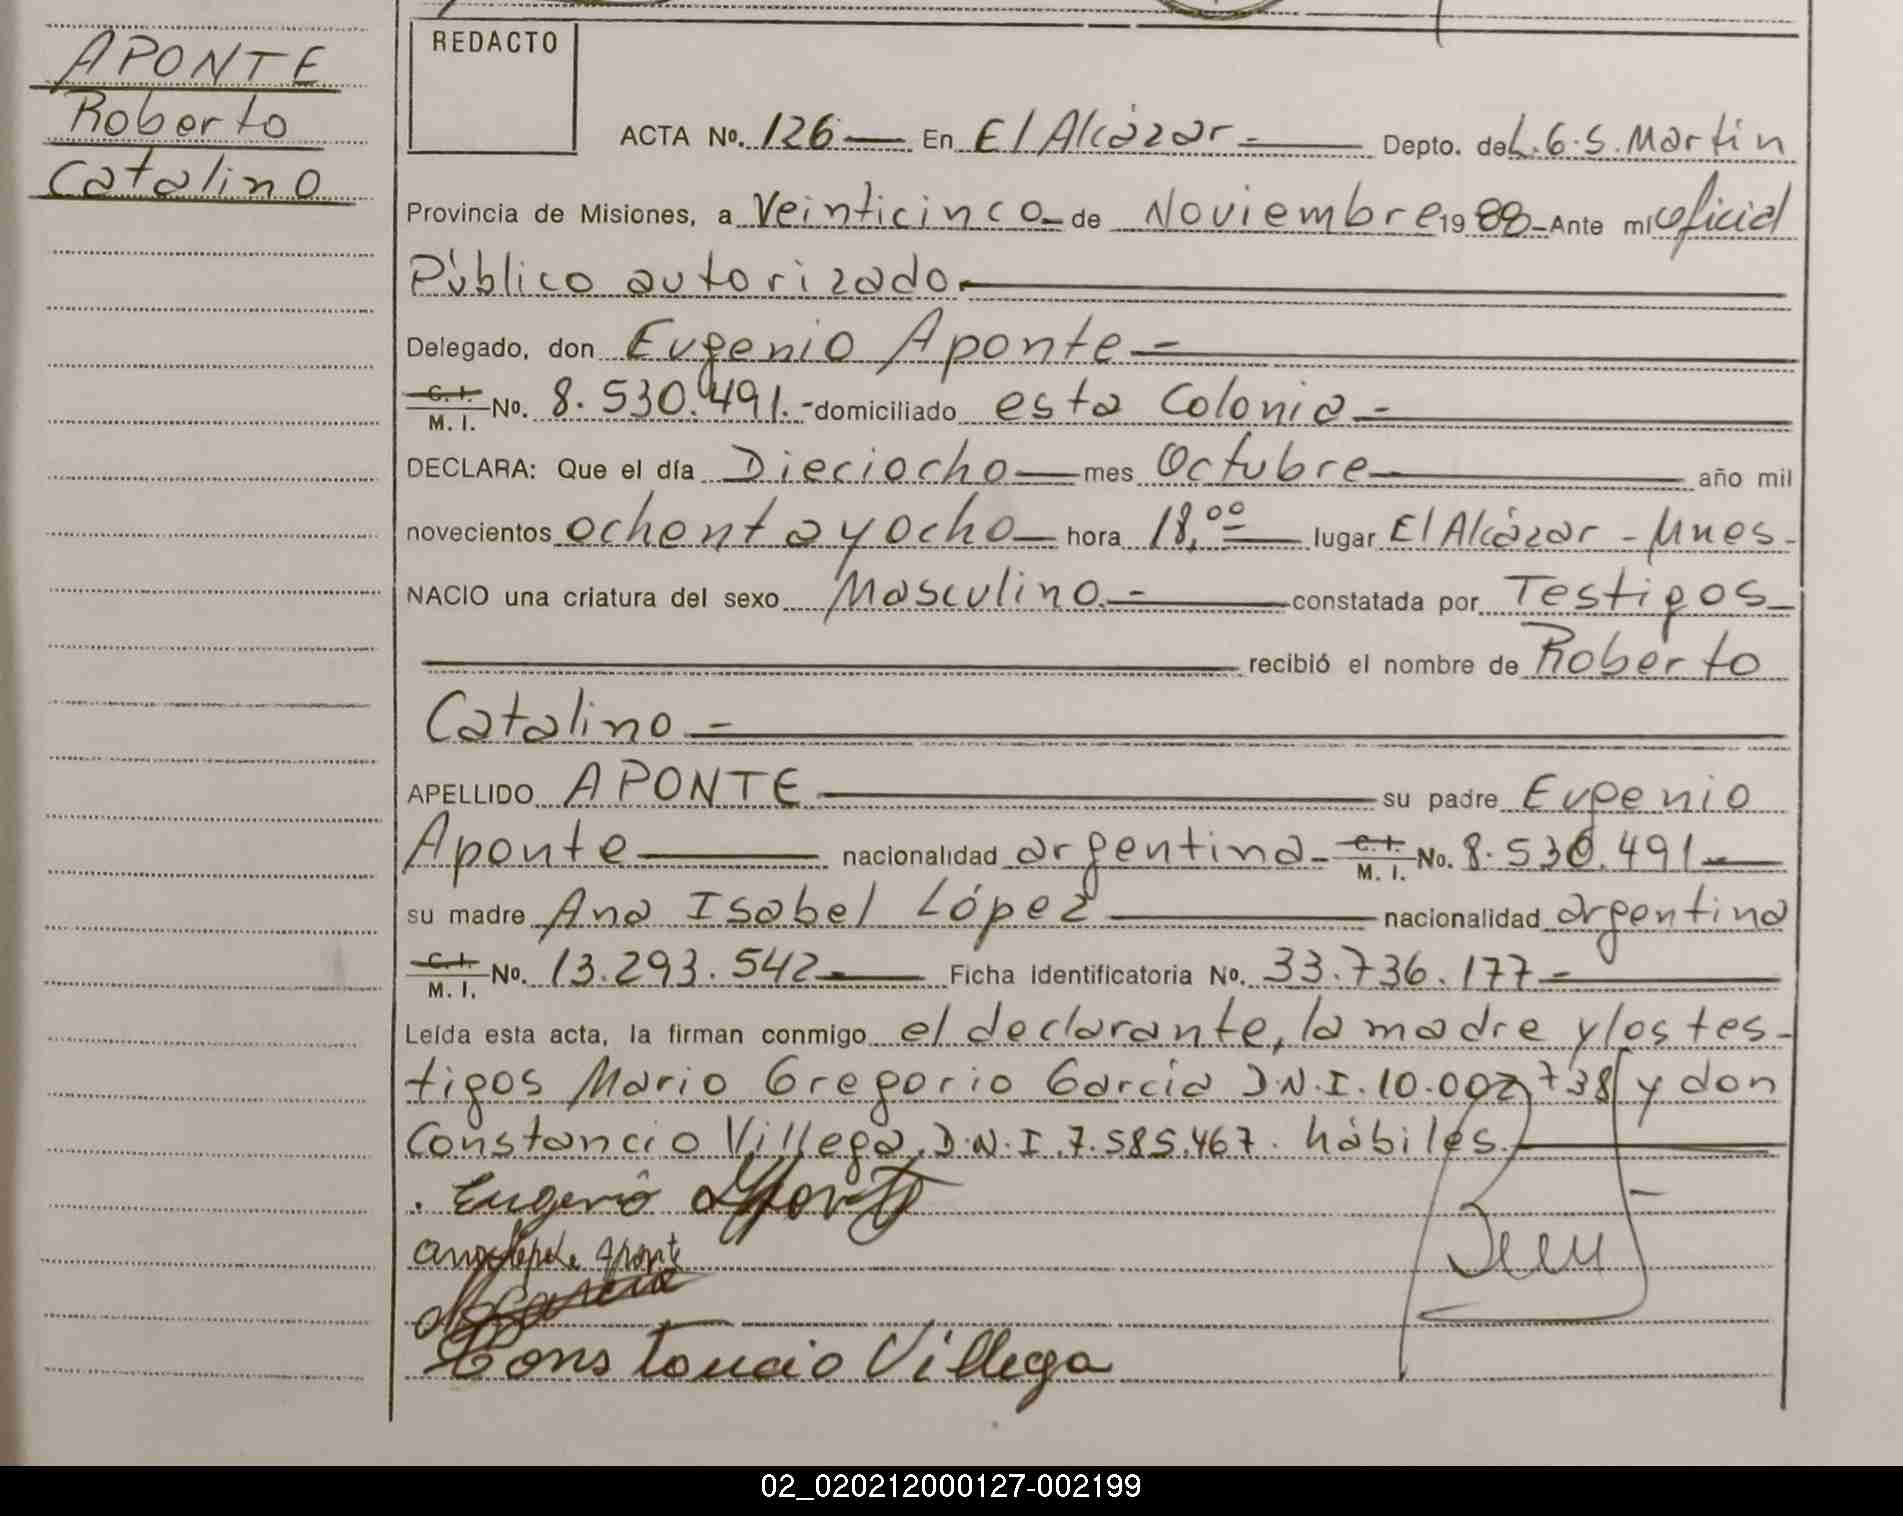 APONTE
Roberto
Catalino
REDACTO
ACTA No. 126 En El Alcázar - Depto. de L.G.S. Martín
Provincia de Misiones, a Veinticinco de Noviembre 1988 - Ante mí oficial
Público autorizado
Delegado, don Eugenio Aponte -
C. I. M. I. No. 8.530.491. - domiciliado esta Colonia -
DECLARA: Que el día Dieciocho mes Octubre año mil
novecientos ochenta y ocho hora 18,00 lugar El Alcázar - Mnes.
NACIO una criatura del sexo Masculino. - constatada por Testigos
recibió el nombre de Roberto
Catalino -
APELLIDO APONTE su padre Eugenio
Aponte nacionalidad argentina - C. I. M. I. No. 8.530.491
su madre Ana Isabel López nacionalidad argentina
C. I. M. I. No. 13.293.542 Ficha Identificatoria No. 33.736.177 -
Leída esta acta, la firman conmigo el declarante, la madre y los tes-
tigos Mario Gregorio García D.N.I. 10.002738 y don
Constancio Villega, D.N.I. 7.585.467. hábiles.
Eugenio Aponte
Aponte
Garcia
Constancio Villega
02_020212000127-002199